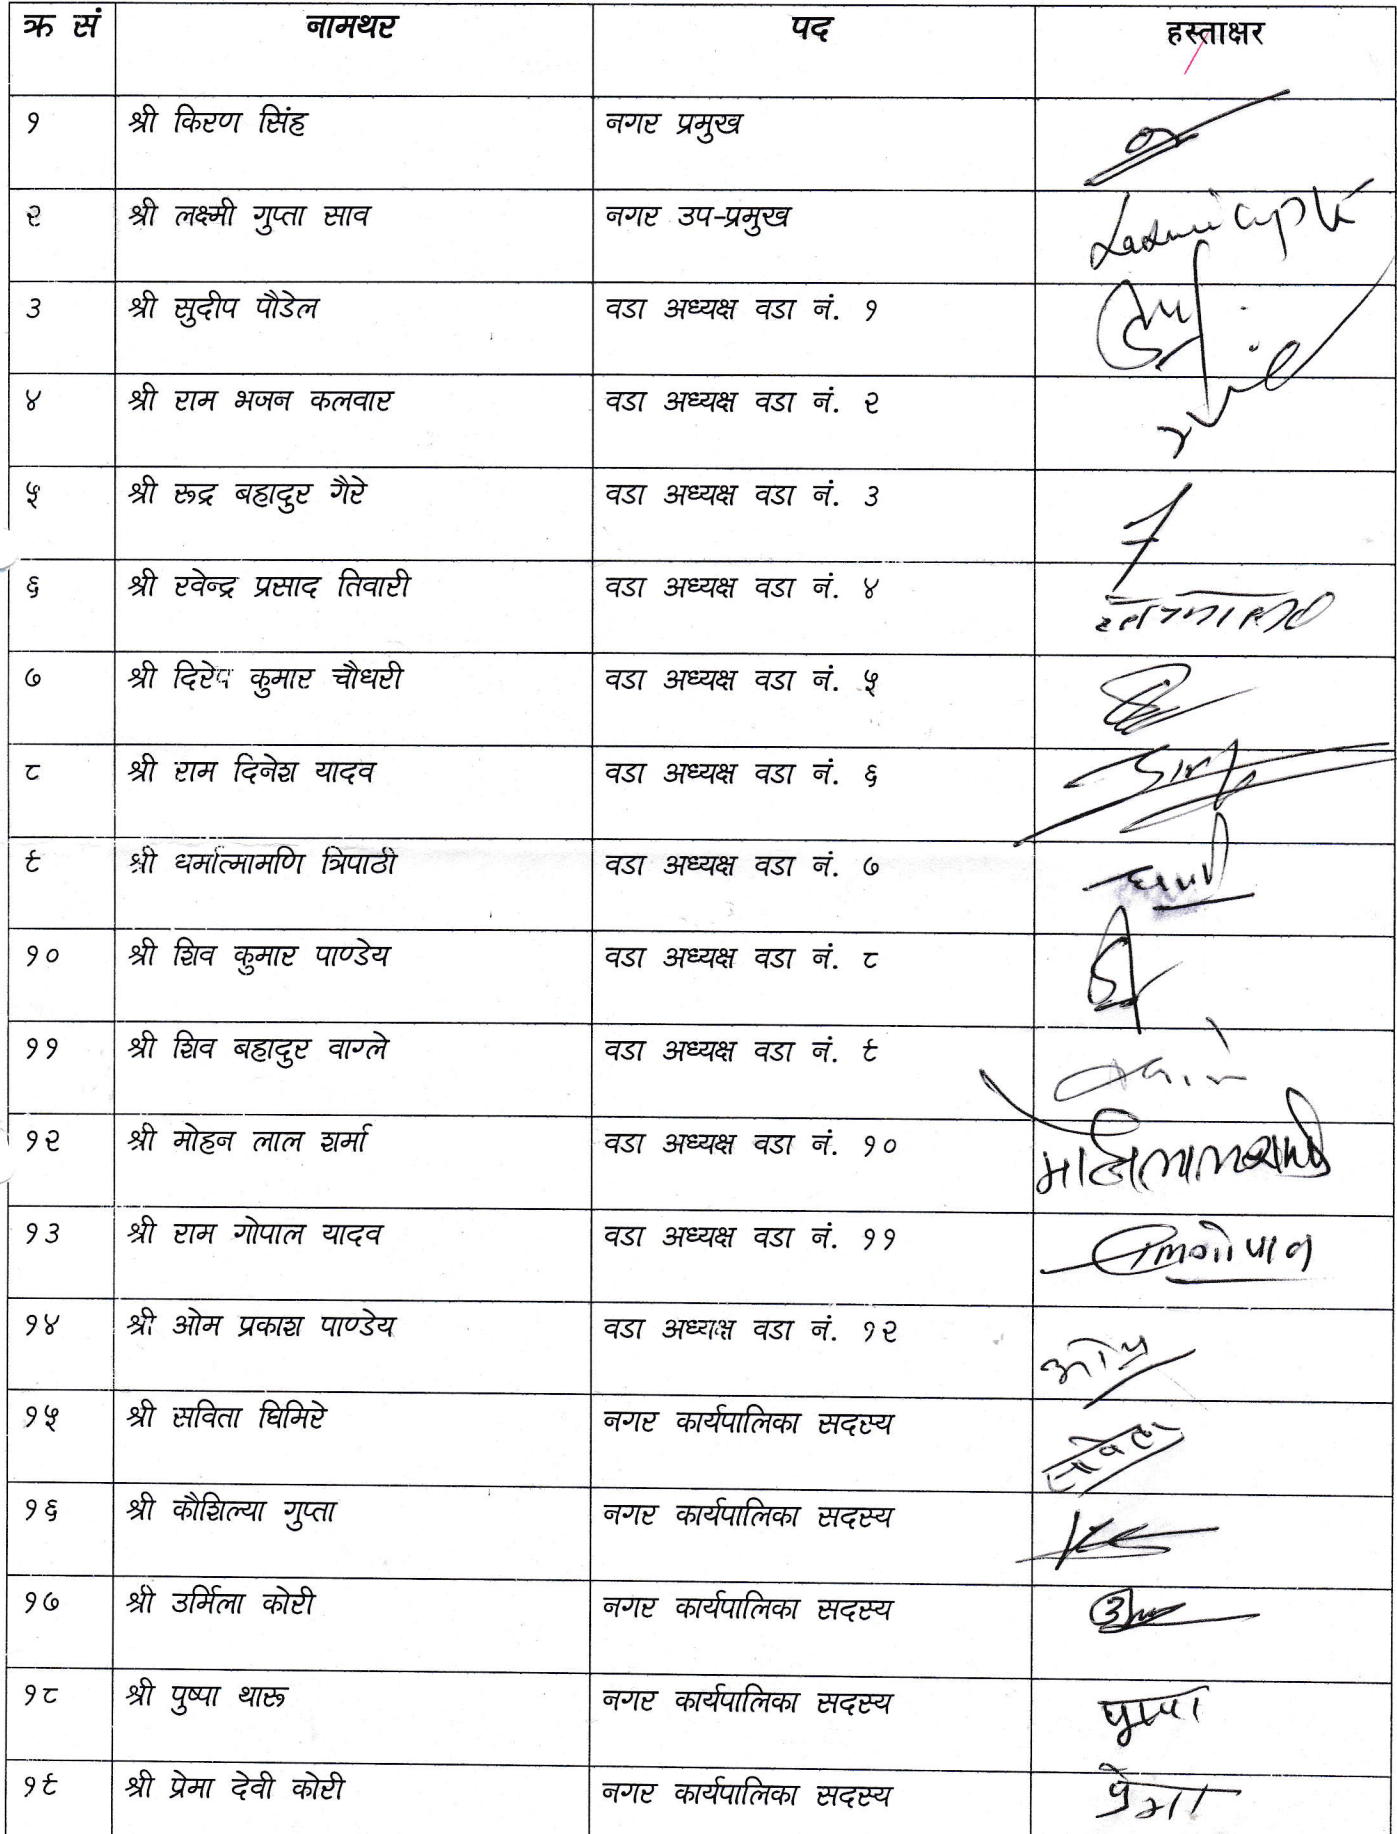 क्र सं नामथर पद हस्ताक्षर
१ श्री किरण सिंह नगर प्रमुख
२ श्री लक्ष्मी गुप्ता साव नगर उप-प्रमुख
३ श्री सुदीप पौडेल वडा अध्यक्ष वडा नं. १
४ श्री राम भजन कलवार वडा अध्यक्ष वडा नं. २
५ श्री रूद्र बहादुर गैरे वडा अध्यक्ष वडा नं. ३
६ श्री रवेन्द्र प्रसाद तिवारी वडा अध्यक्ष वडा नं. ४
७ श्री कुमार चौधरी वडा अध्यक्ष वडा नं. ५
८ श्री राम दिनेश यादव वडा अध्यक्ष वडा नं. ६
९ श्री धर्मात्मामणि त्रिपाठी वडा अध्यक्ष वडा नं. ७
१० श्री शिव कुमार पाण्डेय वडा अध्यक्ष वडा नं. ८
११ श्री शिव बहादुर वाग्ले वडा अध्यक्ष वडा नं. ९
१२ श्री मोहन लाल शर्मा वडा अध्यक्ष वडा नं. १०
१३ श्री राम गोपाल यादव वडा अध्यक्ष वडा नं. ११
१४ श्री ओम प्रकाश पाण्डेय वडा अध्यक्ष वडा नं. १२
१५ श्री सविता घिमिरे नगर कार्यपालिका सदस्य सविता
१६ श्री कौशिल्या गुप्ता नगर कार्यपालिका सदस्य
१७ श्री उर्मिला कोरी नगर कार्यपालिका सदस्य
१८ श्री पुष्पा थारू नगर कार्यपालिका सदस्य पुष्पा
१९ श्री प्रेमा देवी कोरी नगर कार्यपालिका सदस्य प्रेमा